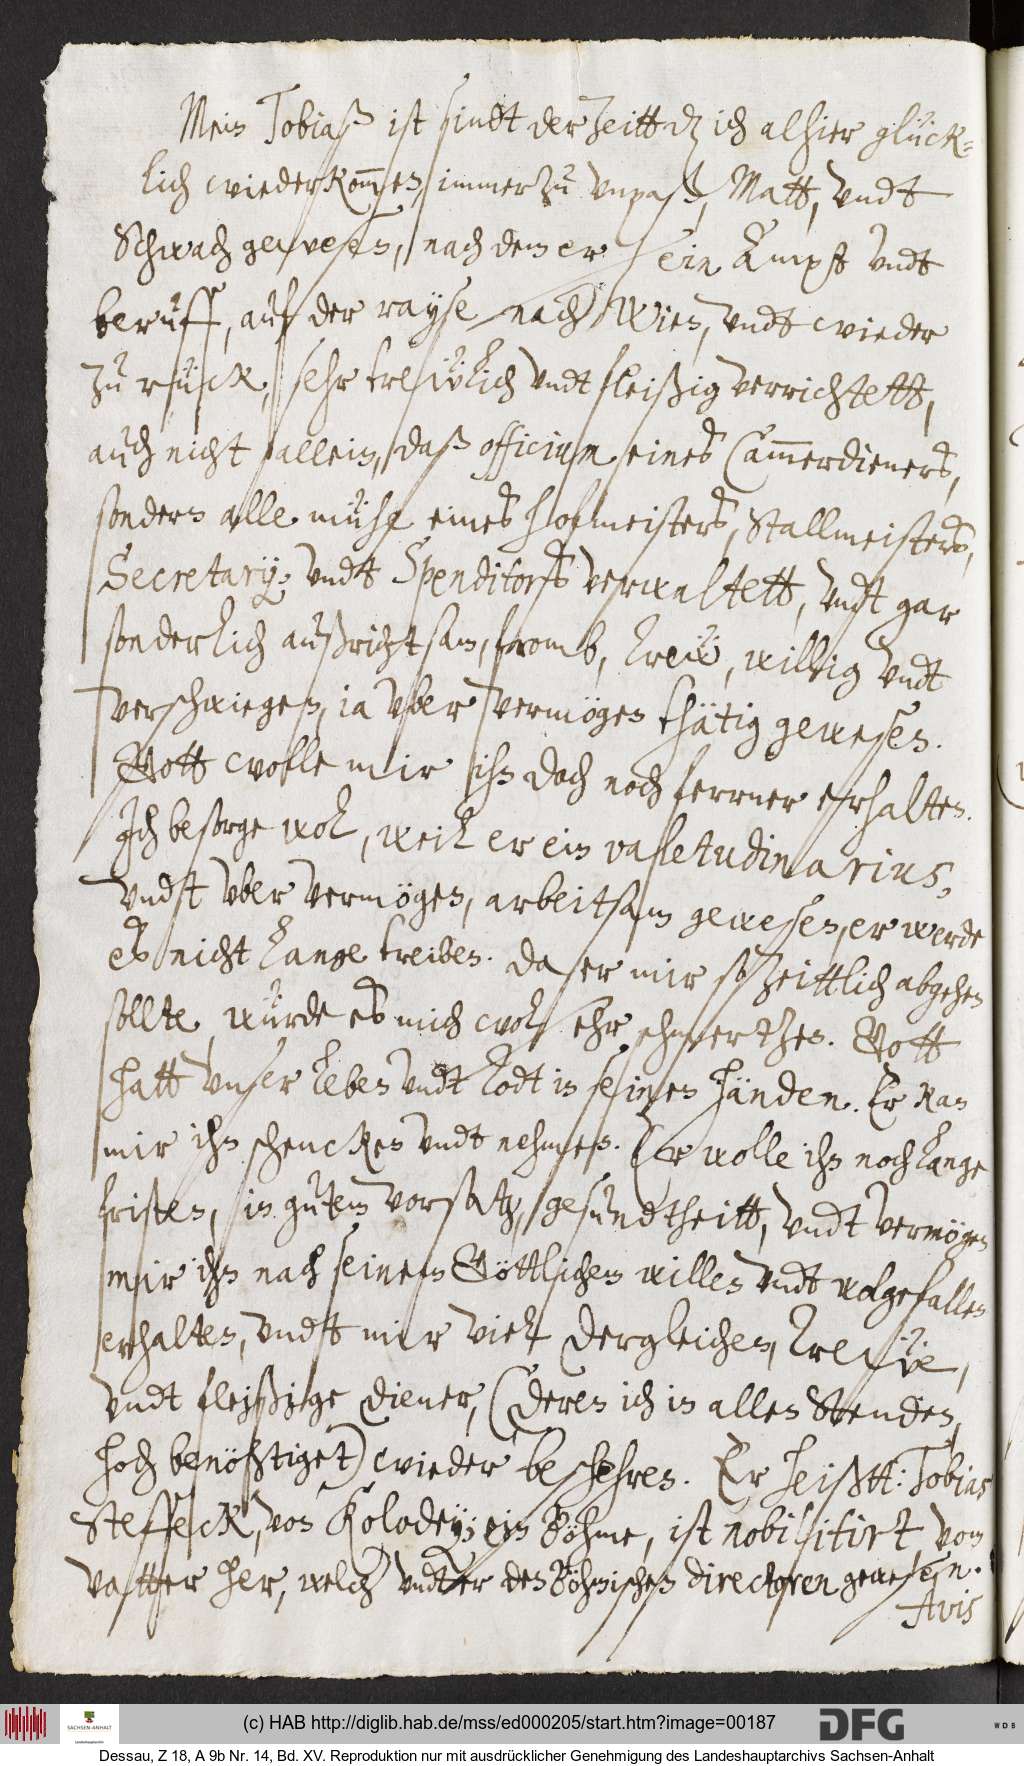 Mein Tobiaß ist sindt der Zeitt dz ich alhier glück-
lich wiederkom̅en, immerzu vnpaß, Matt, vndt
Schwach gewesen, nach dem er sein Ampt vndt
beruff, auf der rayse nach Wien, vndt wieder
zu rück, sehr treẅlich vndt fleißig verrichtett,
auch nicht allein, daß officium eines Cam̅erdieners,
sondern alle mühe eines Hofmeisters, Stallmeisters,
Secretarij, vndt Spenditorß verwaltett, vndt gar
sonderlich außrichtsam, fromb, treẅ, willig vndt
verschwiegen, ia vber vermögen thätig gewesen.
Gott wolle mir ihn doch noch ferrner erhalten.
Ich besorge wol, weil er ein valetudinarius,
vndt vber vermögen, arbeitsam gewesen, er werde
es nicht lange treiben. Da er mir so zeittlich abgehen
sollte, würde es mich wol sehr schmertzen. Gott
hatt vnser leben vndt todt in seinen händen. Er kan
mir ihn schencken vndt nehmen. Er wolle ihn noch lange
fristen, in gutem vorsatz, gesundtheitt, vndt vermögen
mir ihn nach seinem Göttlichen willen vndt wolgefallen
erhalten, vndt mir viel dergleichen, treẅe,
vndt fleißige diener, (deren ich in allen Stenden,
hoch benöhtiget) wieder beschehren. Er heißtt: Tobias
Steffeck, von Kolodey; ein Böhme, ist nobilitirt, vom
vatter her, welcher vndter den Böhmischen directoren gewesen.
Avis
(c) HAB http://diglib.hab.de/mss/ed000205/start.htm?image=00187
SACHSEN-ANHALT
DFG
WDB
Dessau, Z 18, A 9b Nr. 14, Bd. XV. Reproduktion nur mit ausdrücklicher Genehmigung des Landeshauptarchivs Sachsen-Anhalt